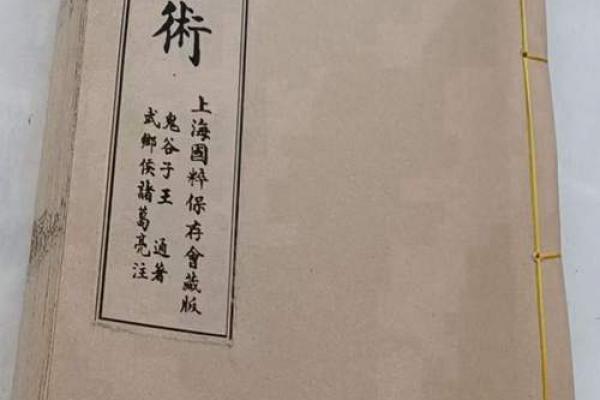 術
上海國粹保存會藏版
鬼谷子王通著
武鄉侯諸葛亮注